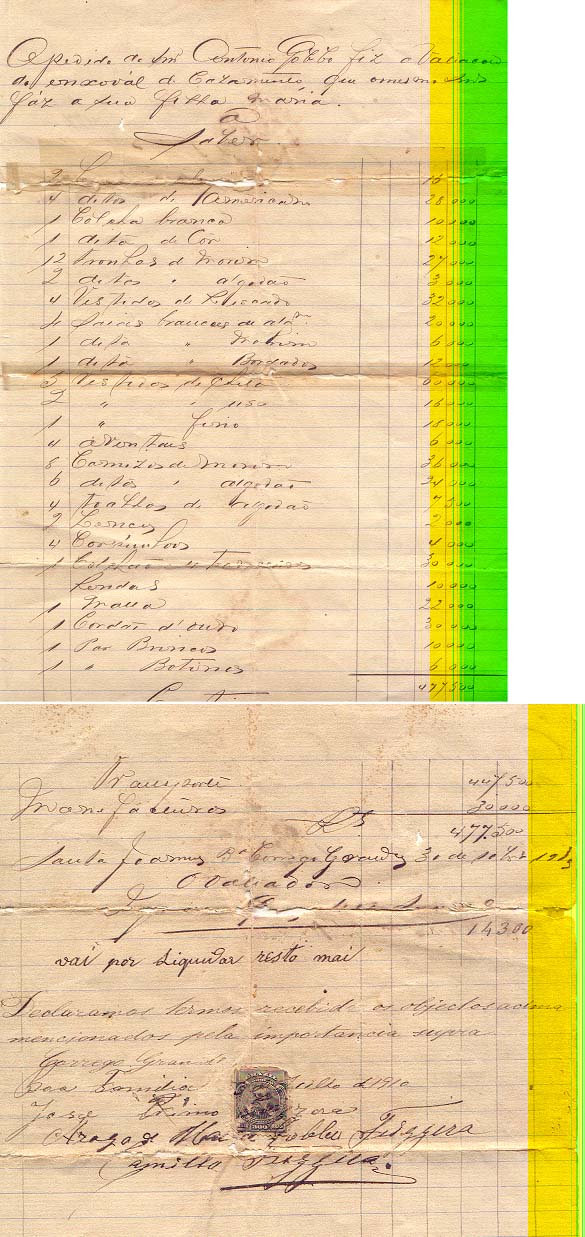 A pedido do Snr Antonio Gobbo fiz a Valiacão
do enxovál d Cazamento que o mesmo Snr
fáz a sua filha Maria.
a
Saber
2 16
4 ditos de Americano 28000
1 Colcha branca 10000
1 dita de Côr 12000
12 Fronhas de Morim 27000
2 ditas " algodão 3000
4 Vestidos de Riscado 32000
4 Saias brancas de algm 20000
1 dita " Morim 6000
1 dita " Bordados 12000
3 Vestidos de Chita 60000
2 " " uso 16000
1 " fino 18000
4 aventaes 6000
8 Camizas de Morim 36000
6 ditas " algodão 24000
4 toalhas de algodão 7500
2 Lencos 2000
4 4000
1 Colchão 30000
Rendas 10000
1 Malla 22000
1 Cordão d'ouro 30000
1 Par Brincos 10000
1 " Botinas 6000
477500
Transporte 447500
Manofacturas 30000
Rs 477500
Santa Joanna Ba Corrego Grande 30 de 10br 19
O Valiador
14300
vai por Liquidar resto mai
Declaramos termos recebido os objectos acima
mencionados pela importancia supra
Corrego Grande
Boa Familia Julho d 1910
José Primo
Arogo de Maria Gobbo Frizzera
Camillo Frizzera
BRAZIL
300